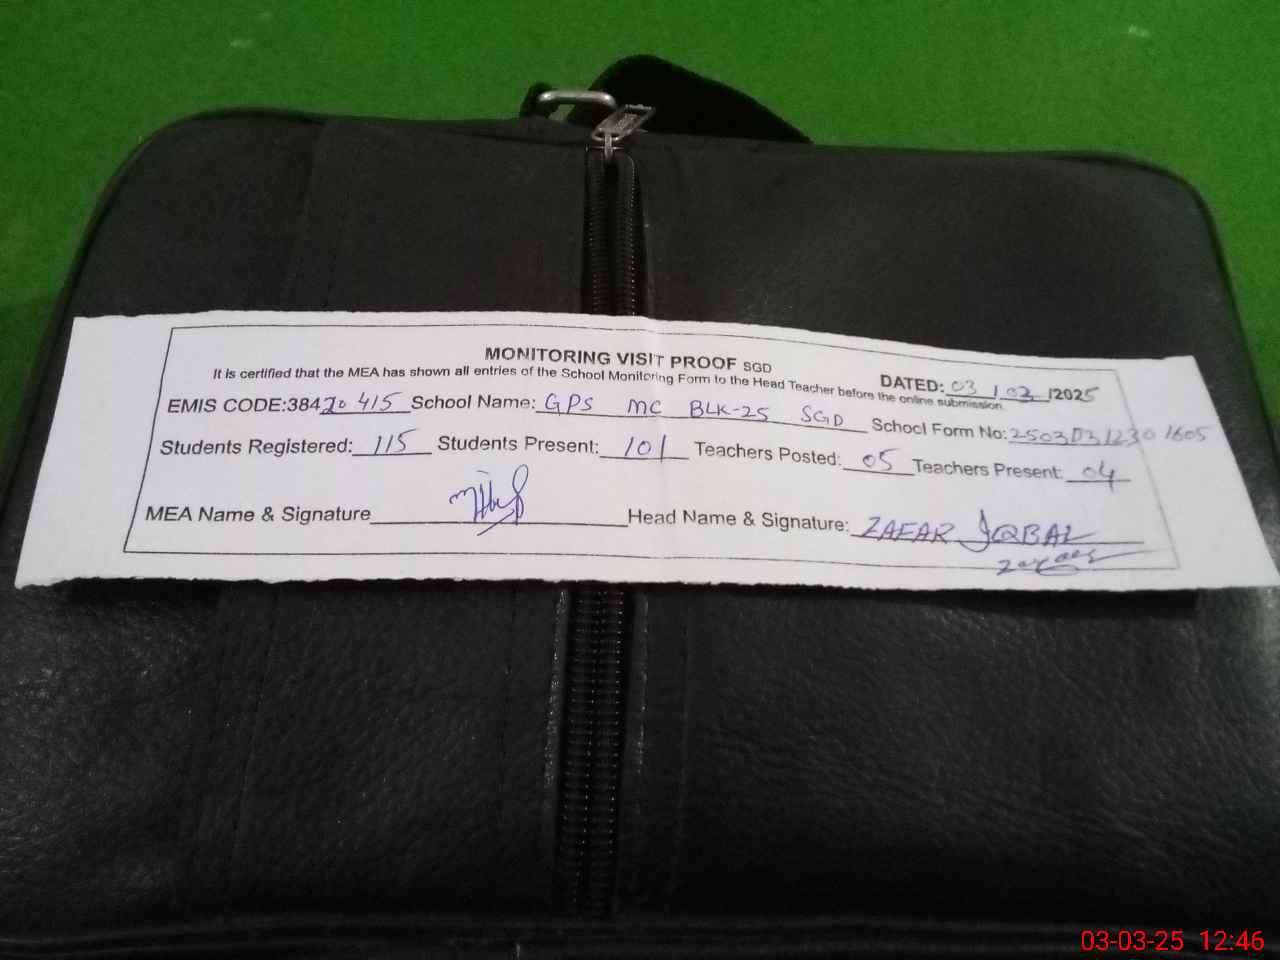 MONITORING VISIT PROOF SGD
DATED: 03/03/2025
It is certified that the MEA has shown all entries of the School Monitoring Form to the Head Teacher before the online submission.
EMIS CODE:38420415 School Name: GPS MC BLK-25 SGD School Form No: 25030312301605
Students Registered: 115 Students Present: 101 Teachers Posted: 05 Teachers Present: 04
MEA Name & Signature Head Name & Signature: ZAFAR IQBAL
03-03-25 12:46